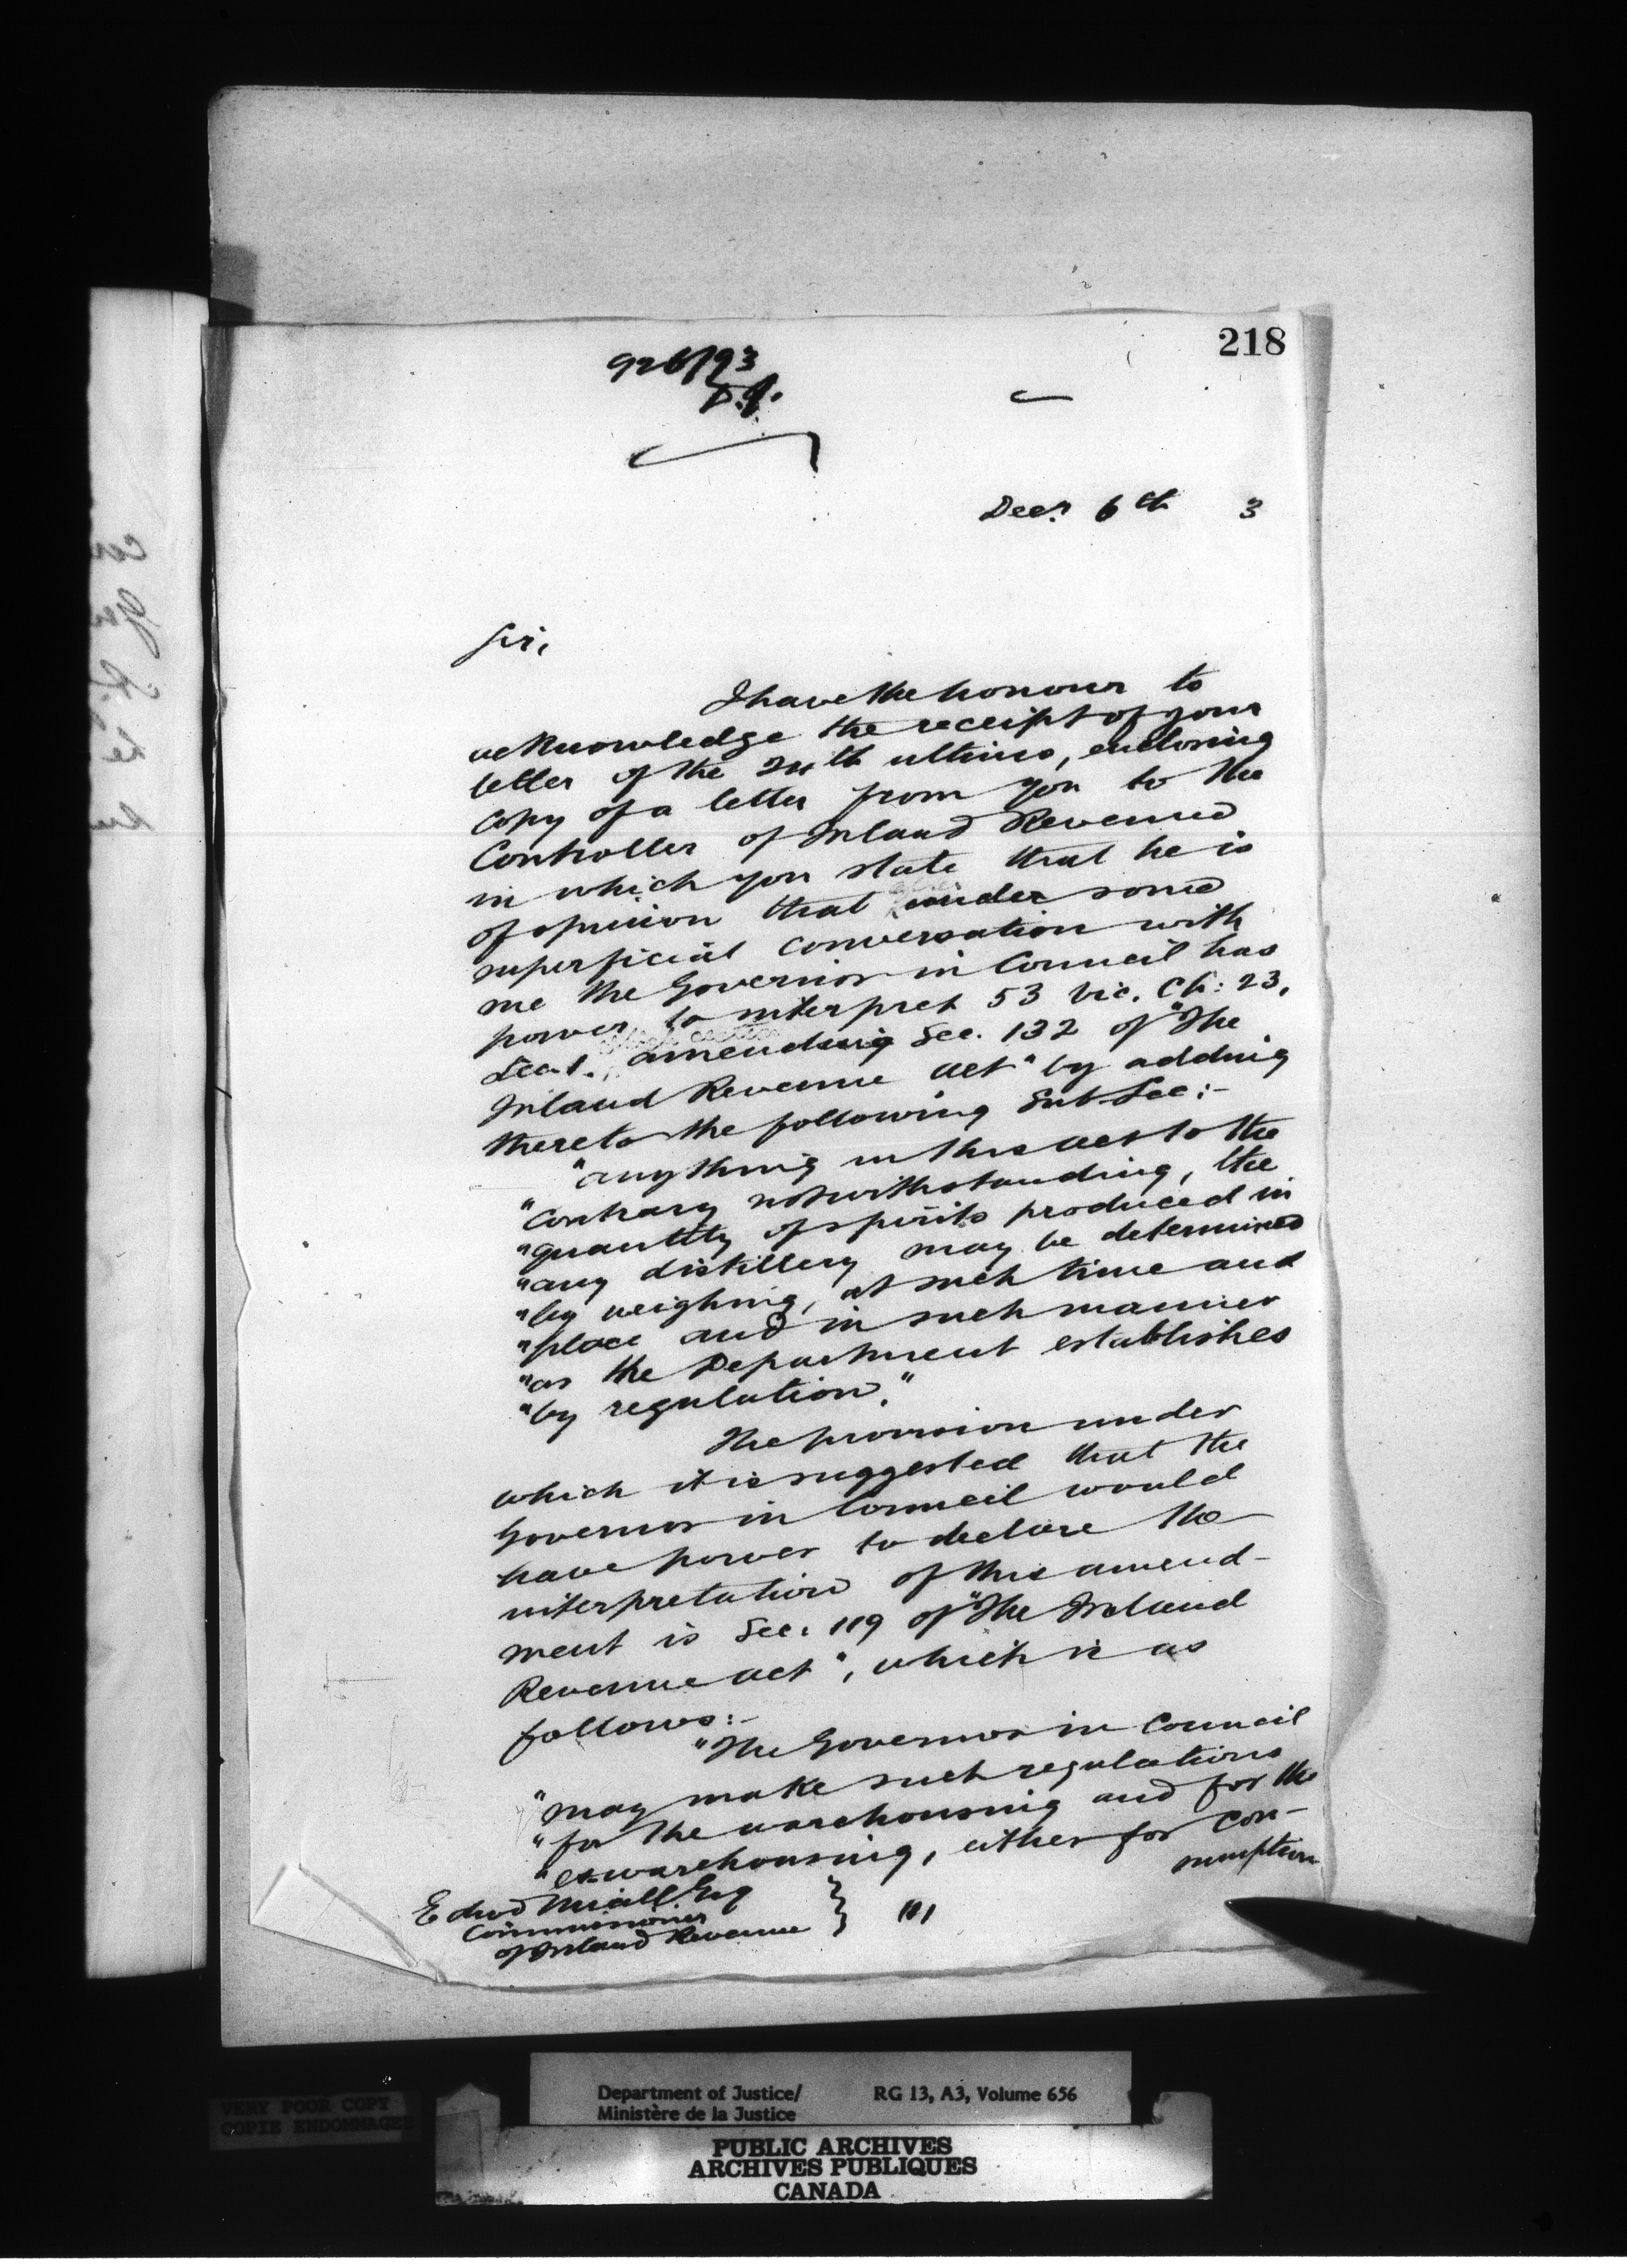 218
926/93
D.J.
Decr. 6th 3
Sir,
I have the honour to
acknowledge the receipt of your
letter of the 24th ultimo, enclosing
copy of a letter from you to the
Controller of Inland Revenue
in which you state that he is
of opinion that under some
superficial conversation with
me the Governor in Council has
power to interpret 53 Vic. Ch: 23,
Sec. 1. amending Sec. 132 of "The
Inland Revenue Act" by adding
thereto the following Sub-Sec:-
"Anything in this act to the
"contrary notwithstanding, the
"quantity of spirits produced in
"any distillery may be determined
"by weighing, at such time and
"place and in such manner
"as the Department establishes
"by regulation."
The provision under
which it is suggested that the
Governor in Council would
have power to declare the
interpretation of this amend-
ment is Sec. 119 of "The Inland
Revenue Act", which is as
follows:-
"The Governor in Council
"may make such regulations
"for the warehousing and for the
"ex-warehousing, either for con-
sumption
Edwd Miall Esq
Commissioner
of Inland Revenue
VERY POOR COPY
COPIE ENDOMMAGEE
Department of Justice/ RG 13, A3, Volume 656
Ministère de la Justice
PUBLIC ARCHIVES
ARCHIVES PUBLIQUES
CANADA